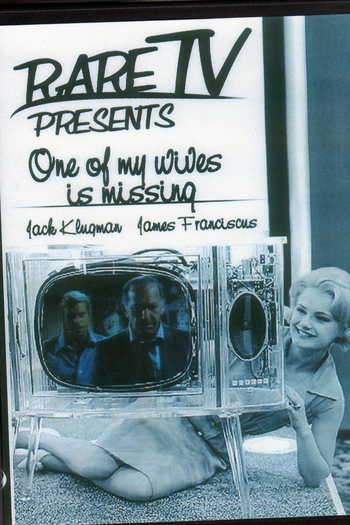 RARE TV
PRESENTS
One of my wives
is missing
Jack Klugman James Franciscus